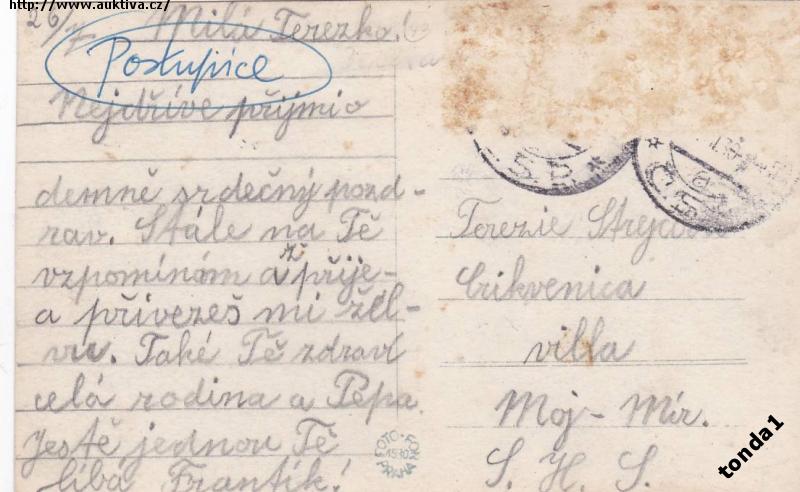 https://www.auktiva.cz/
26/7
Milá Terezko!
Postupice
Nejdříve přijmi o
demně srdečný pozd-
rav. Stále na Tě
vzpomínám až přije-
a přivezeš mi žel-
vu. Také Tě zdraví
celá rodina a Pepa.
Ještě jednou Tě
líbá Frantík!
Terezie
Crikvenica
villa
Moj-Mír.
S. H. S.
FOTO-FON
PRAHA
tonda1